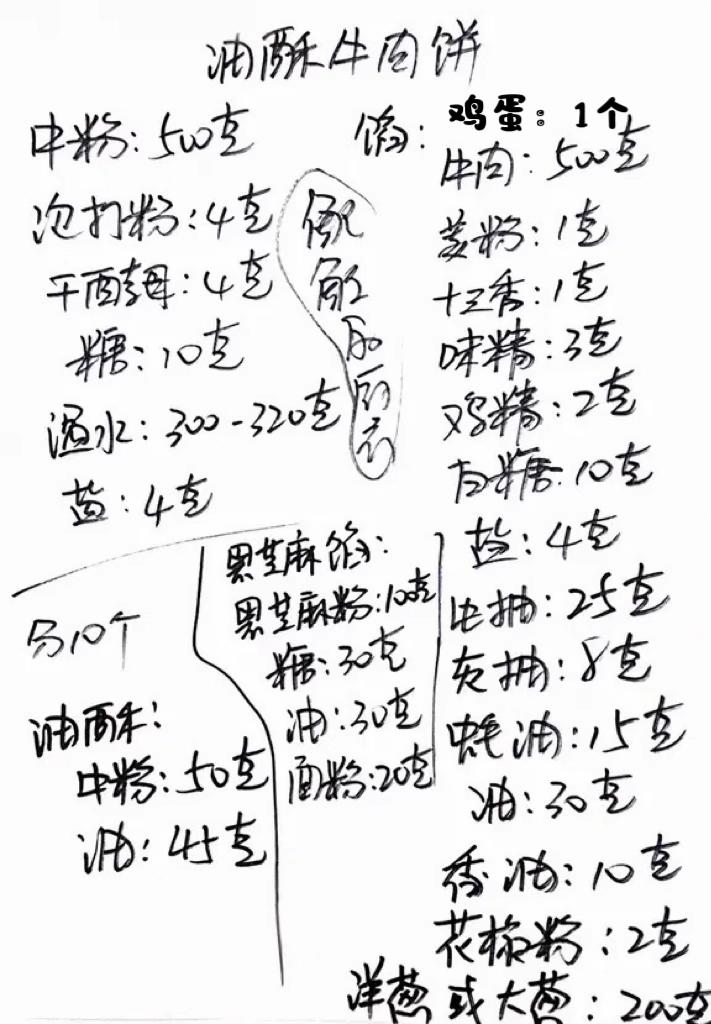 油酥牛肉饼
中粉：500克
泡打粉：4克
干面酵母：4克
糖：10克
温水：300-320克
盐：4克
分10个
油酥：
中粉：50克
油：45克
黑芝麻馅：
黑芝麻粉：100克
糖：30克
油：30克
面粉：20克
馅：
鸡蛋：1个
牛肉：500克
姜粉：1克
十三香：1克
味精：3克
鸡精：2克
白糖：10克
盐：4克
生抽：25克
老抽：8克
蚝油：15克
油：30克
香油：10克
花椒粉：2克
洋葱或大葱：200克